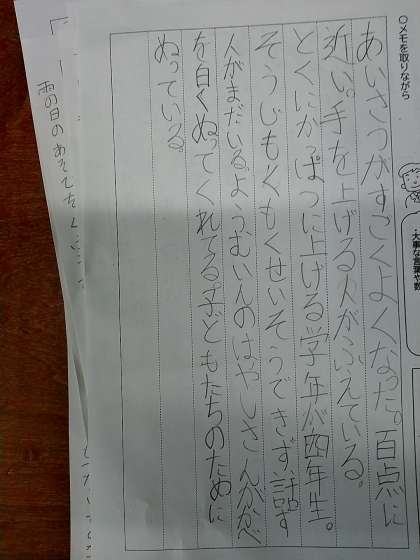 ○メモを取りながら
・大事な言葉や数
あいさつがすごくよくなった。百点に
近い。手を上げる人がふえている。
とくにかっぱつに上げる学年が四年生。
そうじもくもくせいそうできず、話す
人がまだいる。ようむいんのはやしさんがかべ
を白くぬってくれてる子どもたちのために
ぬっている。
雨の日の